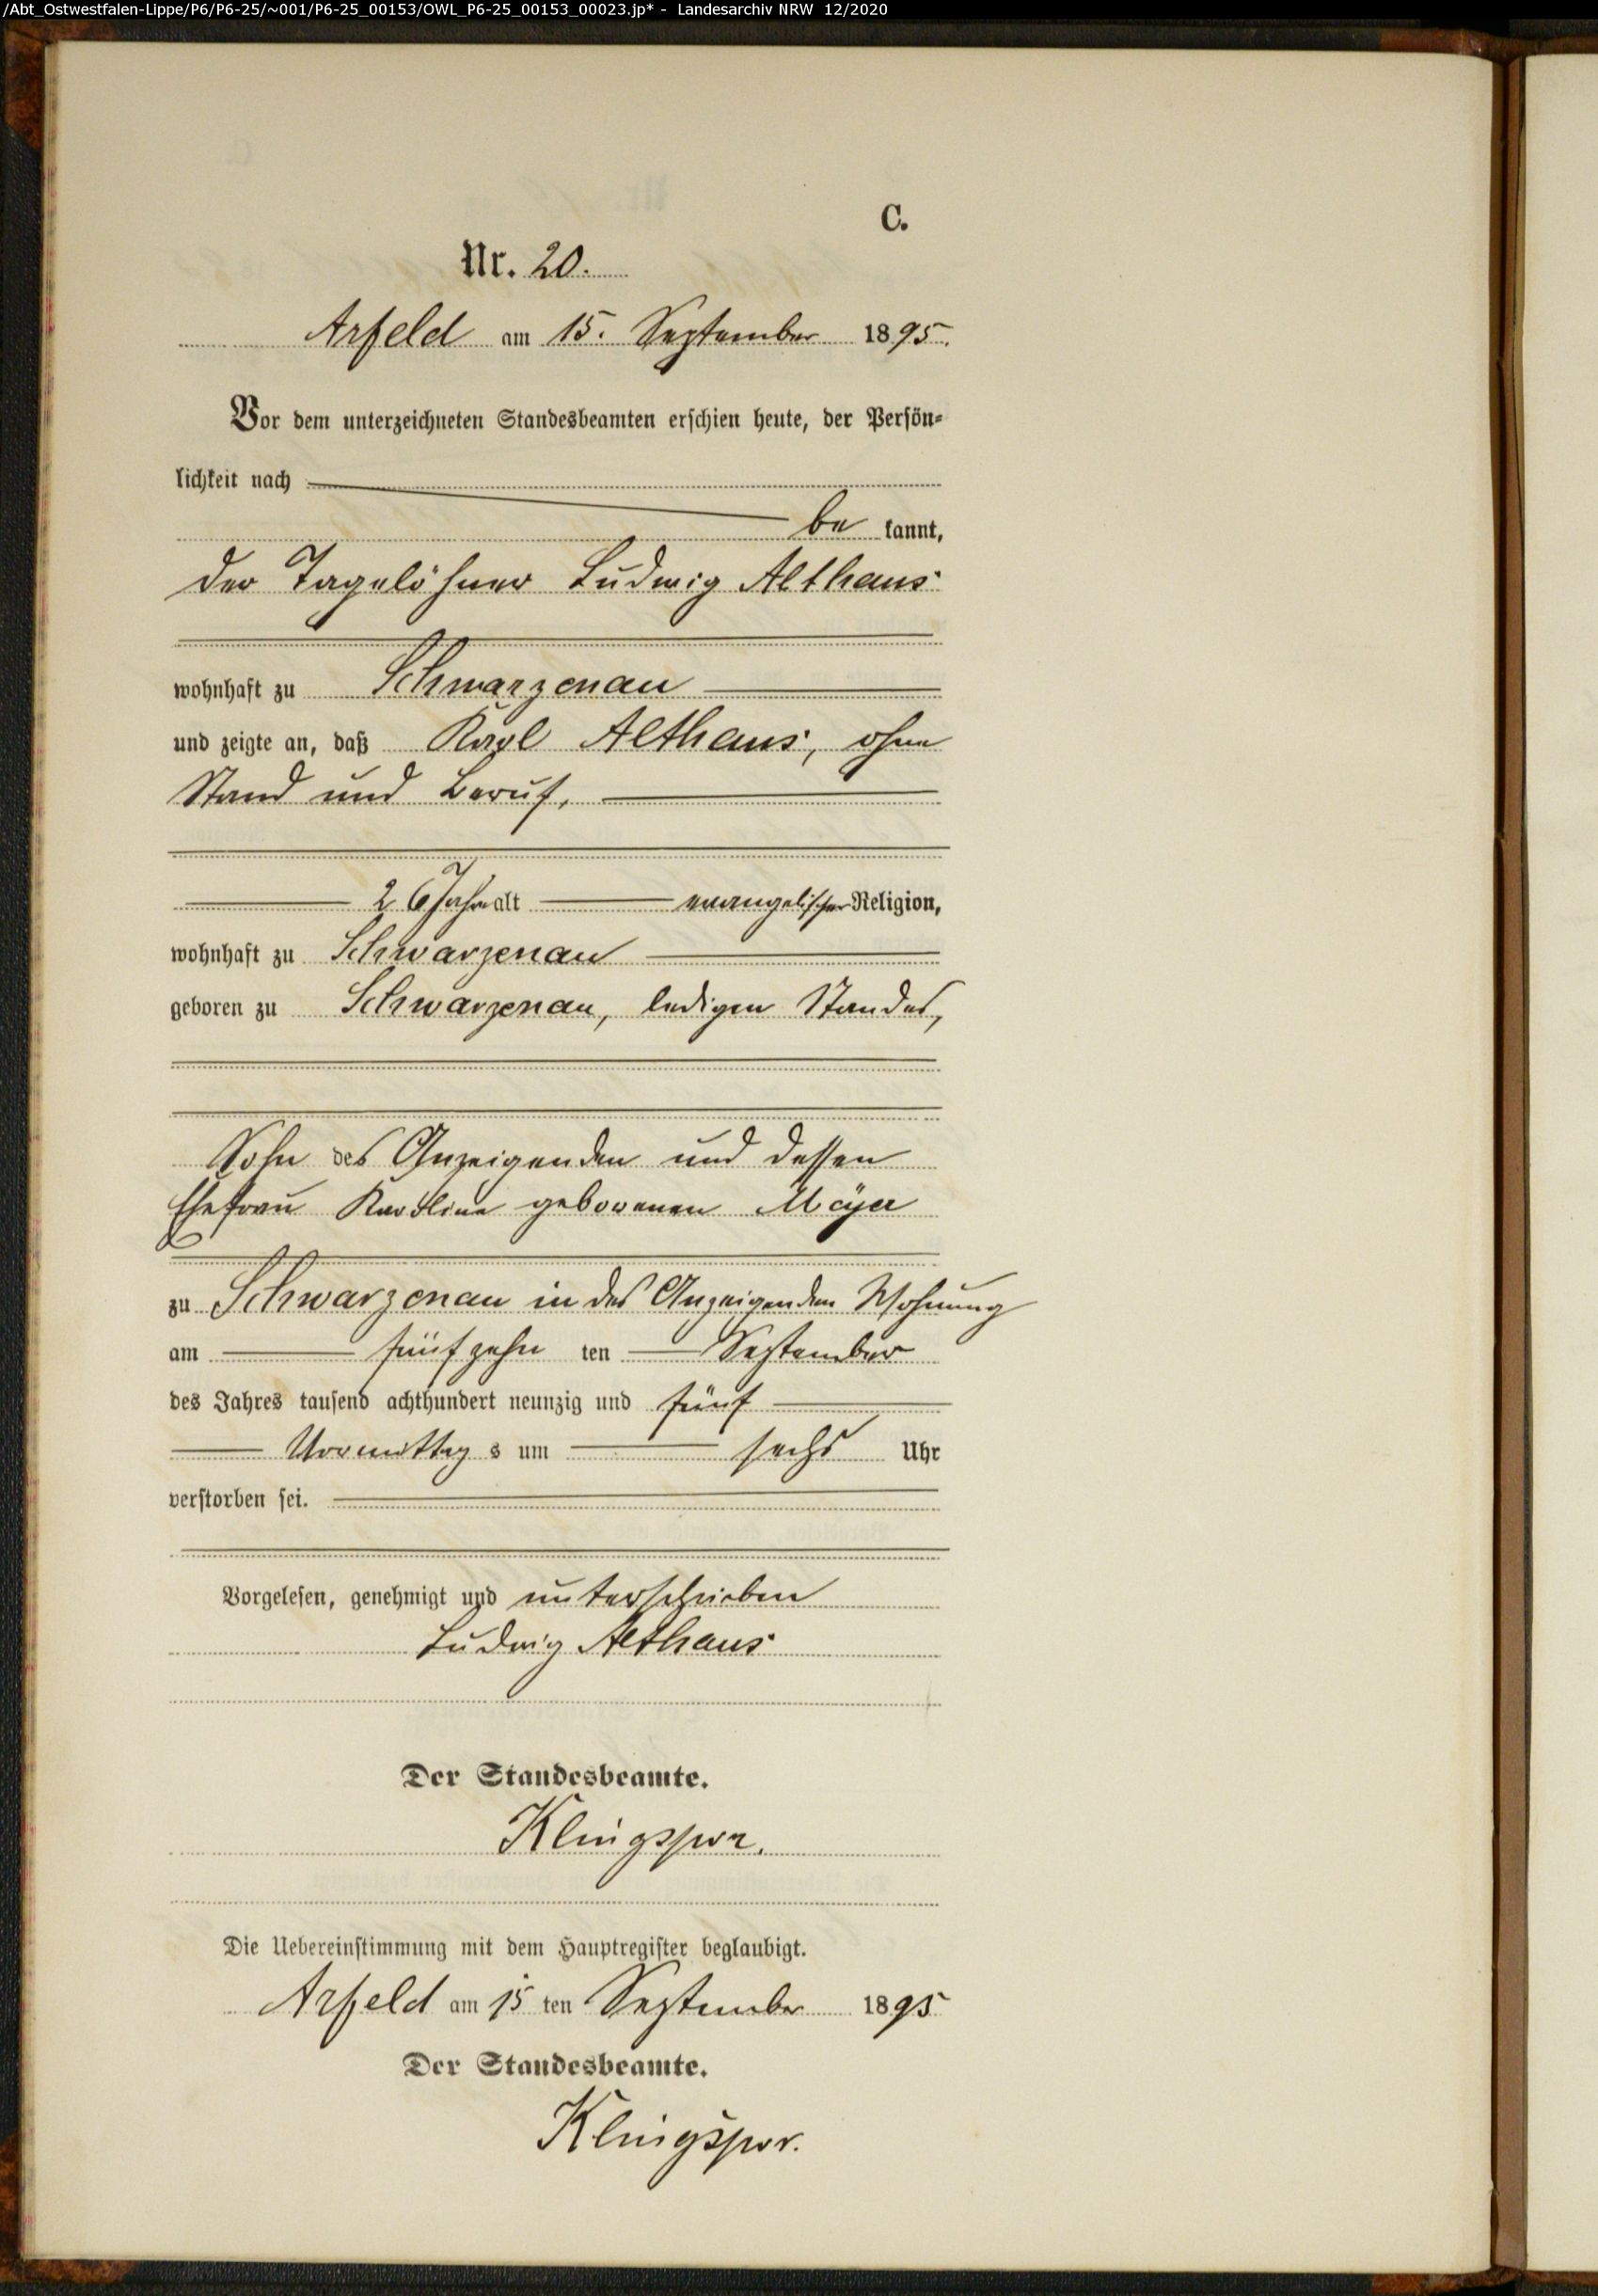 /Abt_Ostwestfalen-Lippe/P6/P6-25/~001/P6-25_00153/OWL_P6-25_00153_00023.jp* - Landesarchiv NRW 12/2020
C.
Nr. 20.
Arfeld am 15. September 1895.
Vor dem unterzeichneten Standesbeamten erschien heute, der Persön-
lichkeit nach
be kannt,
der Tagelöhner Ludwig Althaus
wohnhaft zu Schwarzenau
und zeigte an, daß Karl Althaus, ohne
Stand und Beruf,
26 Jahre alt evangelischer Religion,
wohnhaft zu Schwarzenau
geboren zu Schwarzenau, ledigen Standes,
Sohn des Anzeigenden und dessen
Ehefrau Karoline geborenen Mayer
zu Schwarzenau in des Anzeigenden Wohnung
am fünfzehn ten September
des Jahres tausend achthundert neunzig und fünf
Vormittag s um sechs Uhr
verstorben sei.
Vorgelesen, genehmigt und unterschrieben
Ludwig Althaus
Der Standesbeamte.
Klingspor.
Die Uebereinstimmung mit dem Hauptregister beglaubigt.
Arfeld am 15 ten September 1895
Der Standesbeamte.
Klingspor.